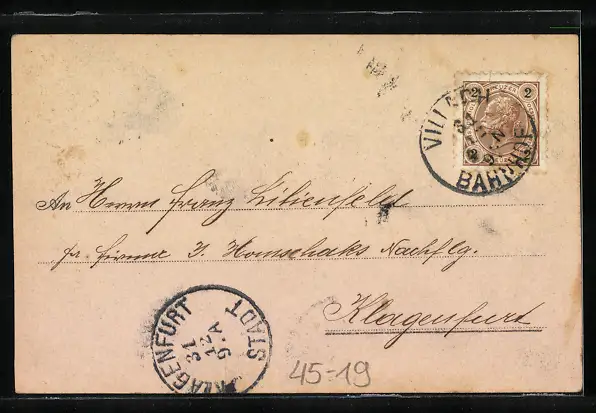 2 KREUZER 2
VILLACH
BAHNHOF
An Herrn Franz Lilienfeld
pr. Firma J. Homschaks Nachflg.
Klagenfurt
KLAGENFURT STADT
31
12
9·A
45-19